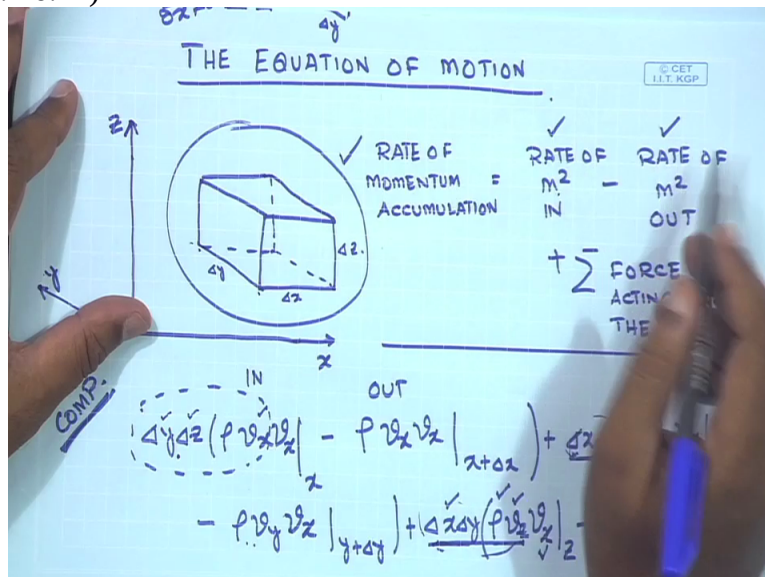 Δy
THE EQUATION OF MOTION
© CET
I.I.T. KGP
z
RATE OF MOMENTUM ACCUMULATION = RATE OF m² IN − RATE OF m² OUT
+ Σ FORCE
ACTING
THE
Δz
Δy
Δx
y
x
COMP.
IN OUT
ΔyΔz(ρvₓvₓ|ₓ − ρvₓvₓ|ₓ₊Δₓ) + Δx
− ρv_y vₓ|_{y+Δy}) + (ΔxΔy(ρv_z vₓ|_z −